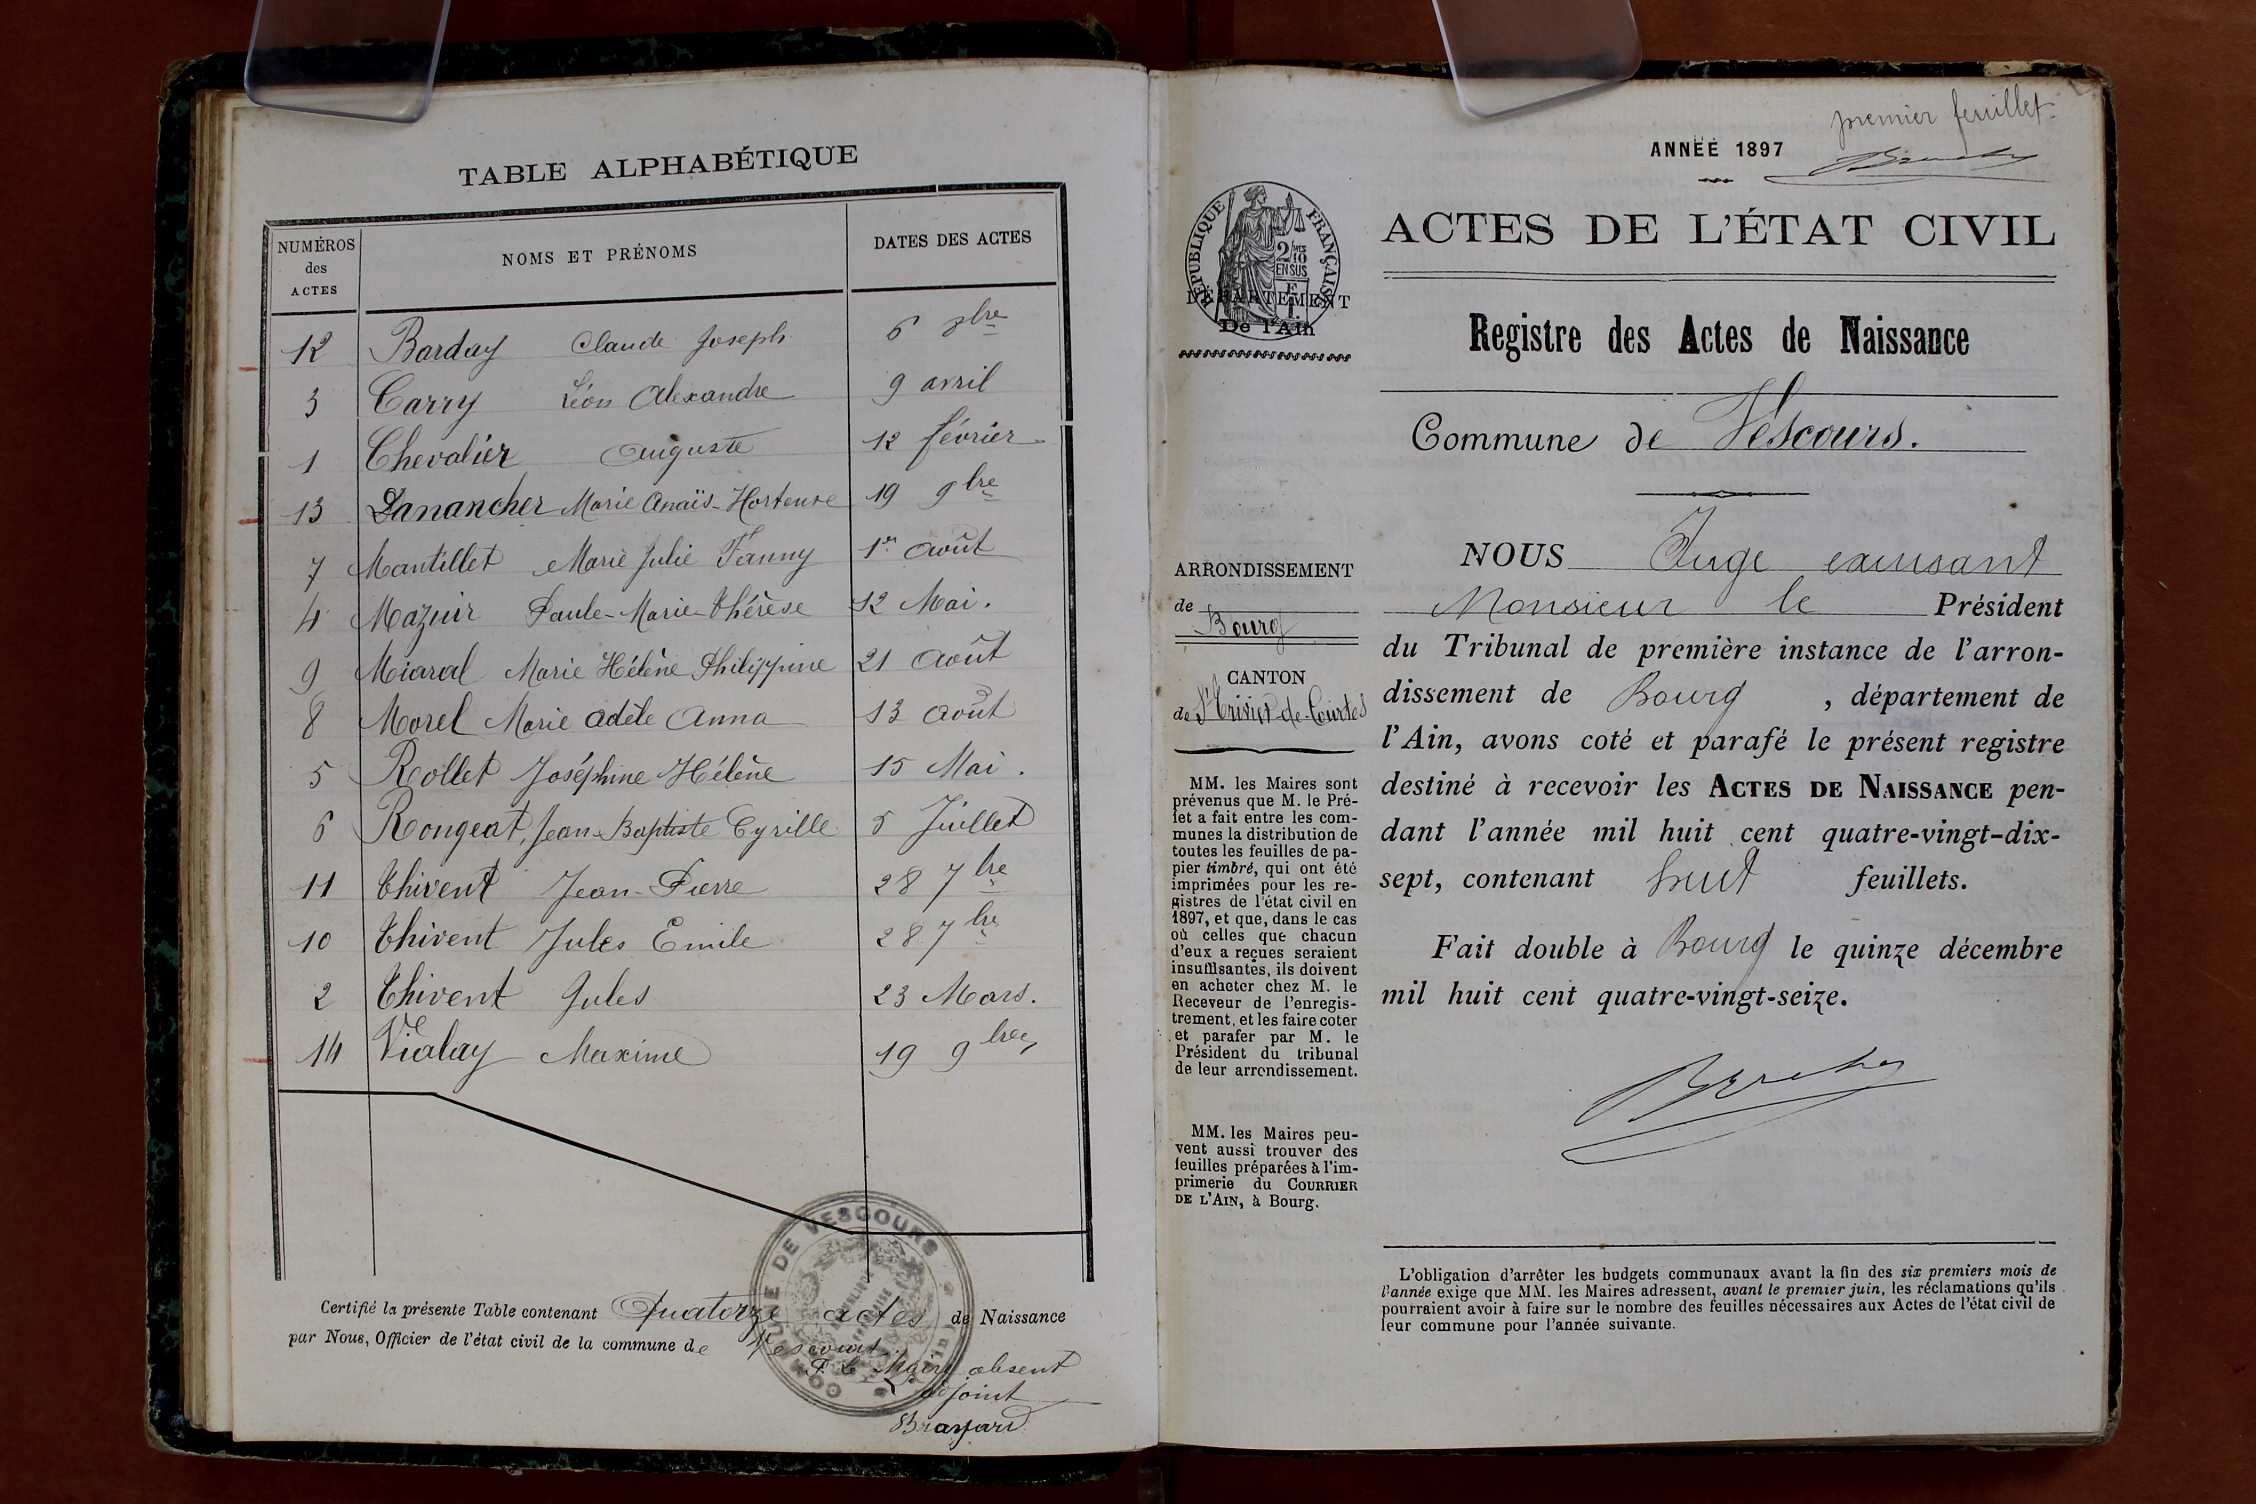 TABLE ALPHABÉTIQUE
NUMÉROS des ACTES
NOMS ET PRÉNOMS
DATES DES ACTES
12 Barday Claude Joseph 6 8bre
3 Carry Léon Alexandre 9 avril
1 Chevalier Auguste 12 février
13 Danancher Marie Anaïs-Hortense 19 9bre
7 Mantillet Marie Julie Fanny 1er août
4 Mazuir Paule-Marie-Thérèse 12 Mai.
9 Miaral Marie Hélène Philippine 21 Août
8 Morel Marie Adèle Anna 13 août
5 Rollet Joséphine Hélène 15 Mai.
6 Rongeat, Jean-Baptiste Cyrille 5 Juillet
11 Thivent Jean-Pierre 28 7bre
10 Thivent Jules Emile 28 7bre
2 Thivent Jules 23 Mars.
14 Vialay Maxime 19 9bre
COMMUNE DE VESCOURS
Certifié la présente Table contenant Quatorze actes de Naissance
par Nous, Officier de l'état civil de la commune de Vescours
P. le Maire absent
adjoint
premier feuillet
ANNÉE 1897
RÉPUBLIQUE FRANÇAISE
2/10 EN SUS
DÉPARTEMENT
De l'Ain
ACTES DE L'ÉTAT CIVIL
Registre des Actes de Naissance
Commune de Vescours.
ARRONDISSEMENT
de Bourg
CANTON
de St Trivier-de-Courtes
MM. les Maires sont
prévenus que M. le Pré-
fet a fait entre les com-
munes la distribution de
toutes les feuilles de pa-
pier timbré, qui ont été
imprimées pour les re-
gistres de l'état civil en
1897, et que, dans le cas
où celles que chacun
d'eux a reçues seraient
insuffisantes, ils doivent
en acheter chez M. le
Receveur de l'enregis-
trement, et les faire coter
et parafer par M. le
Président du tribunal
de leur arrondissement.
MM. les Maires peu-
vent aussi trouver des
feuilles préparées à l'im-
primerie du COURRIER
DE L'AIN, à Bourg.
NOUS Juge excusant
Monsieur le Président
du Tribunal de première instance de l'arron-
dissement de Bourg , département de
l'Ain, avons coté et parafé le présent registre
destiné à recevoir les ACTES DE NAISSANCE pen-
dant l'année mil huit cent quatre-vingt-dix-
sept, contenant huit feuillets.
Fait double à Bourg le quinze décembre
mil huit cent quatre-vingt-seize.
L'obligation d'arrêter les budgets communaux avant la fin des six premiers mois de
l'année exige que MM. les Maires adressent, avant le premier juin, les réclamations qu'ils
pourraient avoir à faire sur le nombre des feuilles nécessaires aux Actes de l'état civil de
leur commune pour l'année suivante.